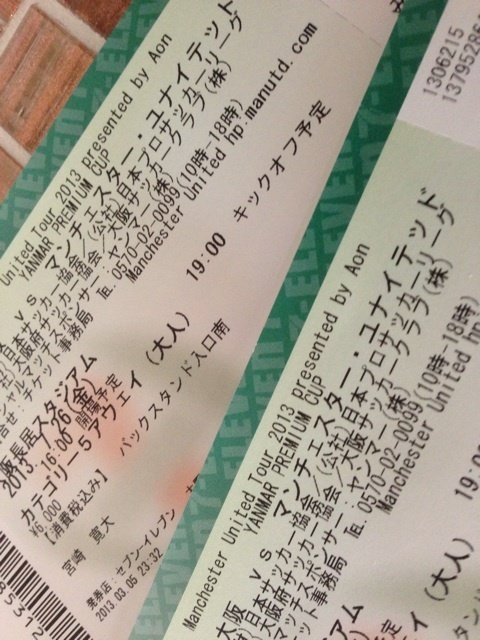 United Tour 2013 presented by Aon
YANMAR PREMIUM CUP
vs マンチェスター・ユナイテッド
日本サッカー協会/(公社)日本プロサッカーリーグ
大阪府サッカー協会/大阪サッカークラブ(株)
シャルマッチスポンサー:ヤンマー(株)
合せ:チケット事務局 TEL. 0570-02-0099(10時-18時)
Manchester United hp.manutd.com
19:00 キックオフ予定
阪長居スタジアム
2013. 7. 26(金)
16:00 開場予定
カテゴリー5 アウェイ (大人)
¥6,000 バックスタンド入口南
【消費税込み】
宮崎 寛大
発券店:セブン-イレブン
2013.03.05 23:32
1306215
Manchester United Tour 2013 presented by Aon
YANMAR PREMIUM CUP
大阪 vs マンチェスター・ユナイテッド
日本サッカー協会/(公社)日本プロサッカーリーグ
大阪府サッカー協会/大阪サッカークラブ(株)
マッチスポンサー:ヤンマー(株)
事務局 TEL. 0570-02-0099(10時-18時)
Manchester United hp
19:0
ジアム
予定
(大人)